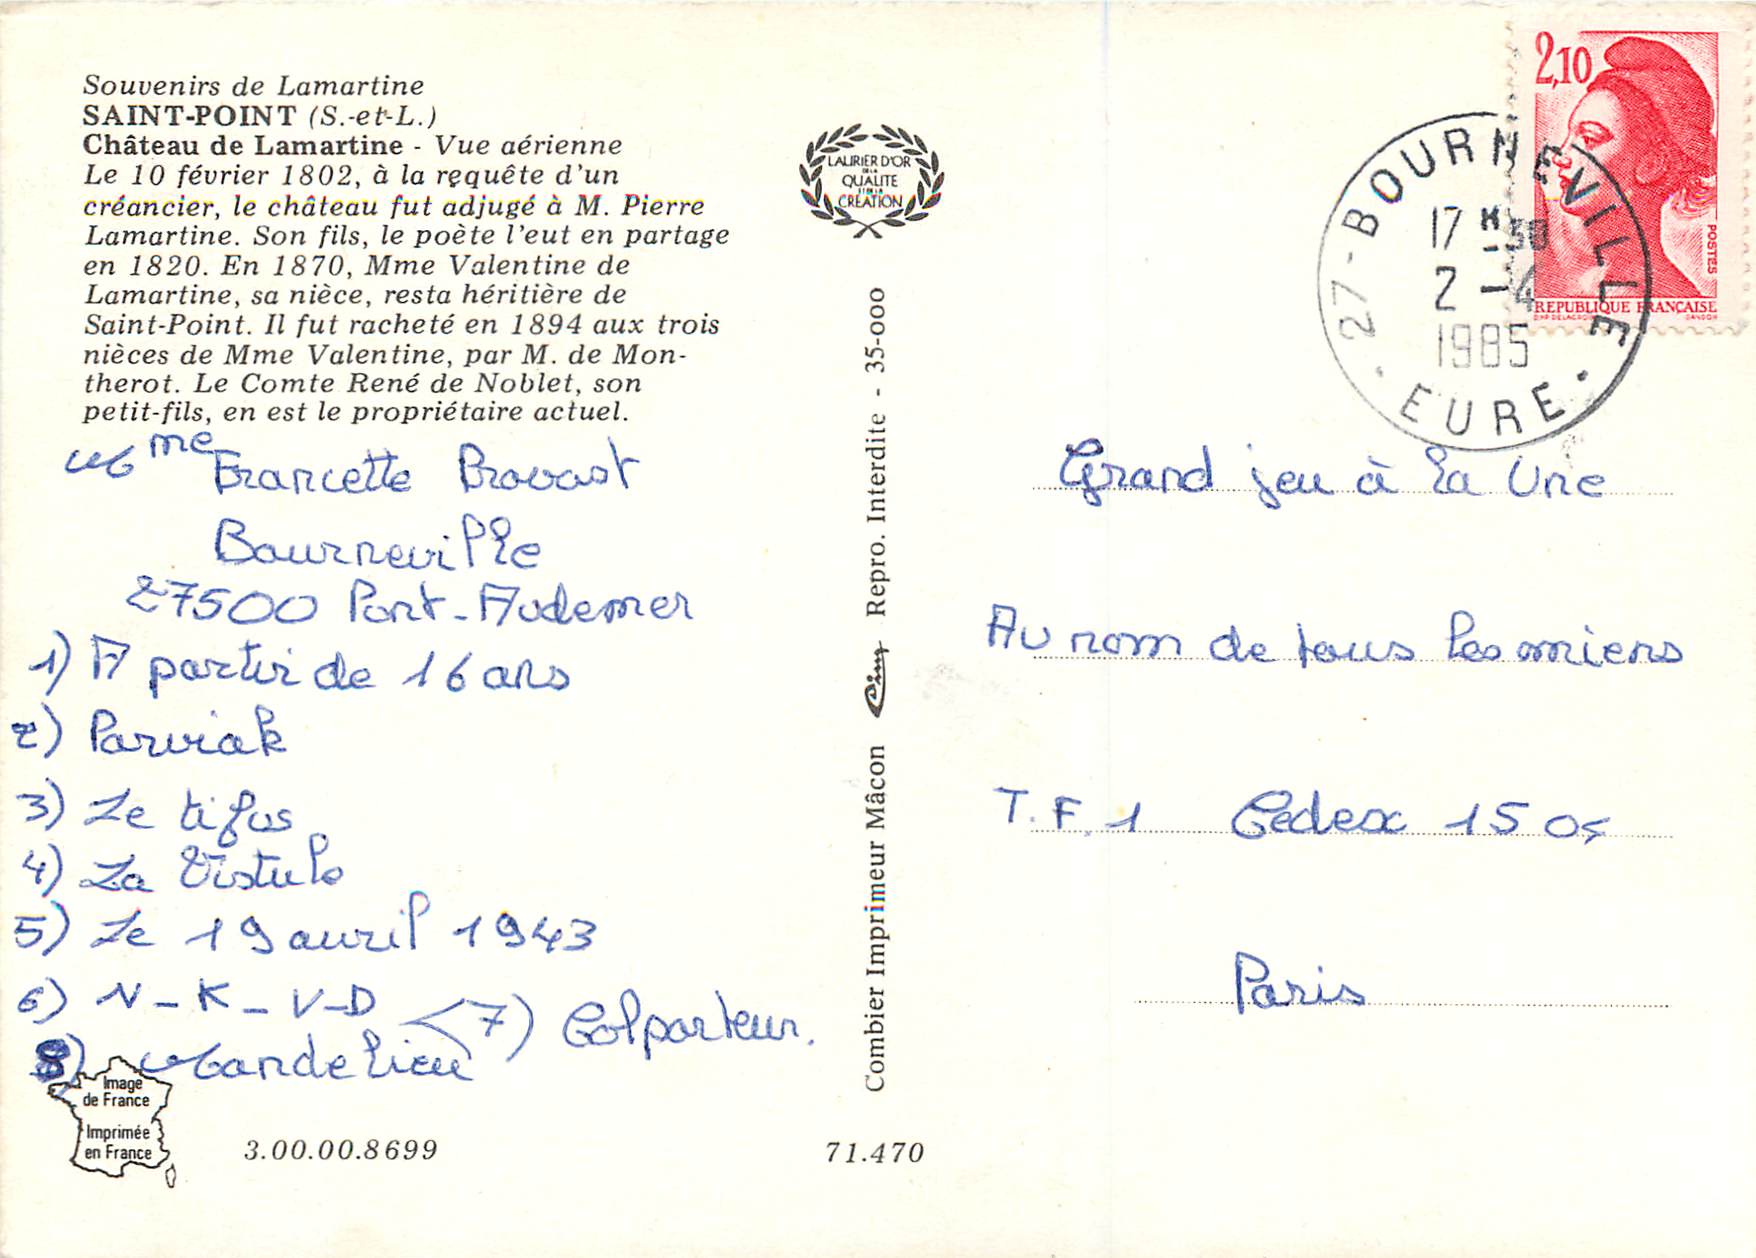 Souvenirs de Lamartine
SAINT-POINT (S.-et-L.)
Château de Lamartine - Vue aérienne
Le 10 février 1802, à la requête d'un
créancier, le château fut adjugé à M. Pierre
Lamartine. Son fils, le poète l'eut en partage
en 1820. En 1870, Mme Valentine de
Lamartine, sa nièce, resta héritière de
Saint-Point. Il fut racheté en 1894 aux trois
nièces de Mme Valentine, par M. de Mon-
therot. Le Comte René de Noblet, son
petit-fils, en est le propriétaire actuel.
Mme Francette Provost
Bourneville
27500 Pont-Audemer
1) A partir de 16 ans
2) Parviak
3) Le tifus
4) La Vistule
5) Le 19 avril 1943
6) N-K-V-D
7) Colporteur.
8) Mandelieu
Image
de France
Imprimée
en France
3.00.00.8699
LAURIER D'OR
DE LA
QUALITE
ET DE LA
CREATION
Combier Imprimeur Mâcon Cim Repro. Interdite - 35-000
71.470
2,10
POSTES
REPUBLIQUE FRANÇAISE
D'AP. DELACROIX GANDON
27-BOURNEVILLE
17 H -30
2 -4
1985
EURE
Grand jeu à la Une
Au nom de tous les miens
T.F.1 Cedex 1505
Paris